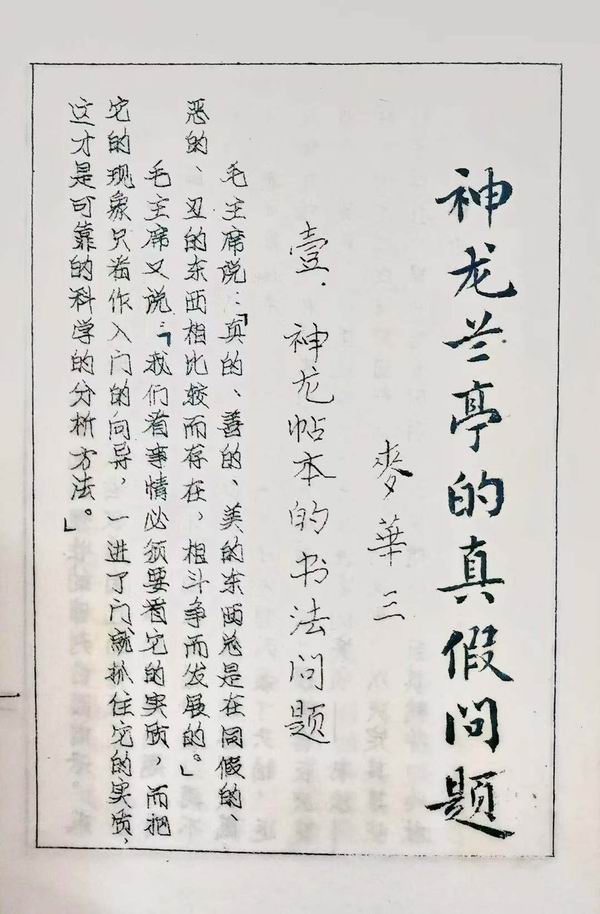 神龙兰亭的真假问题
麥華三
壹．神龙帖本的书法问题
毛主席说：「真的、善的、美的东西总是在同假的、
恶的、丑的东西相比较而存在，相斗争而发展的。」
毛主席又说：「我们看事情必须要看它的实质，而把
它的现象只看作入门的向导，一进了门就抓住它的实质，
这才是可靠的科学的分析方法。」